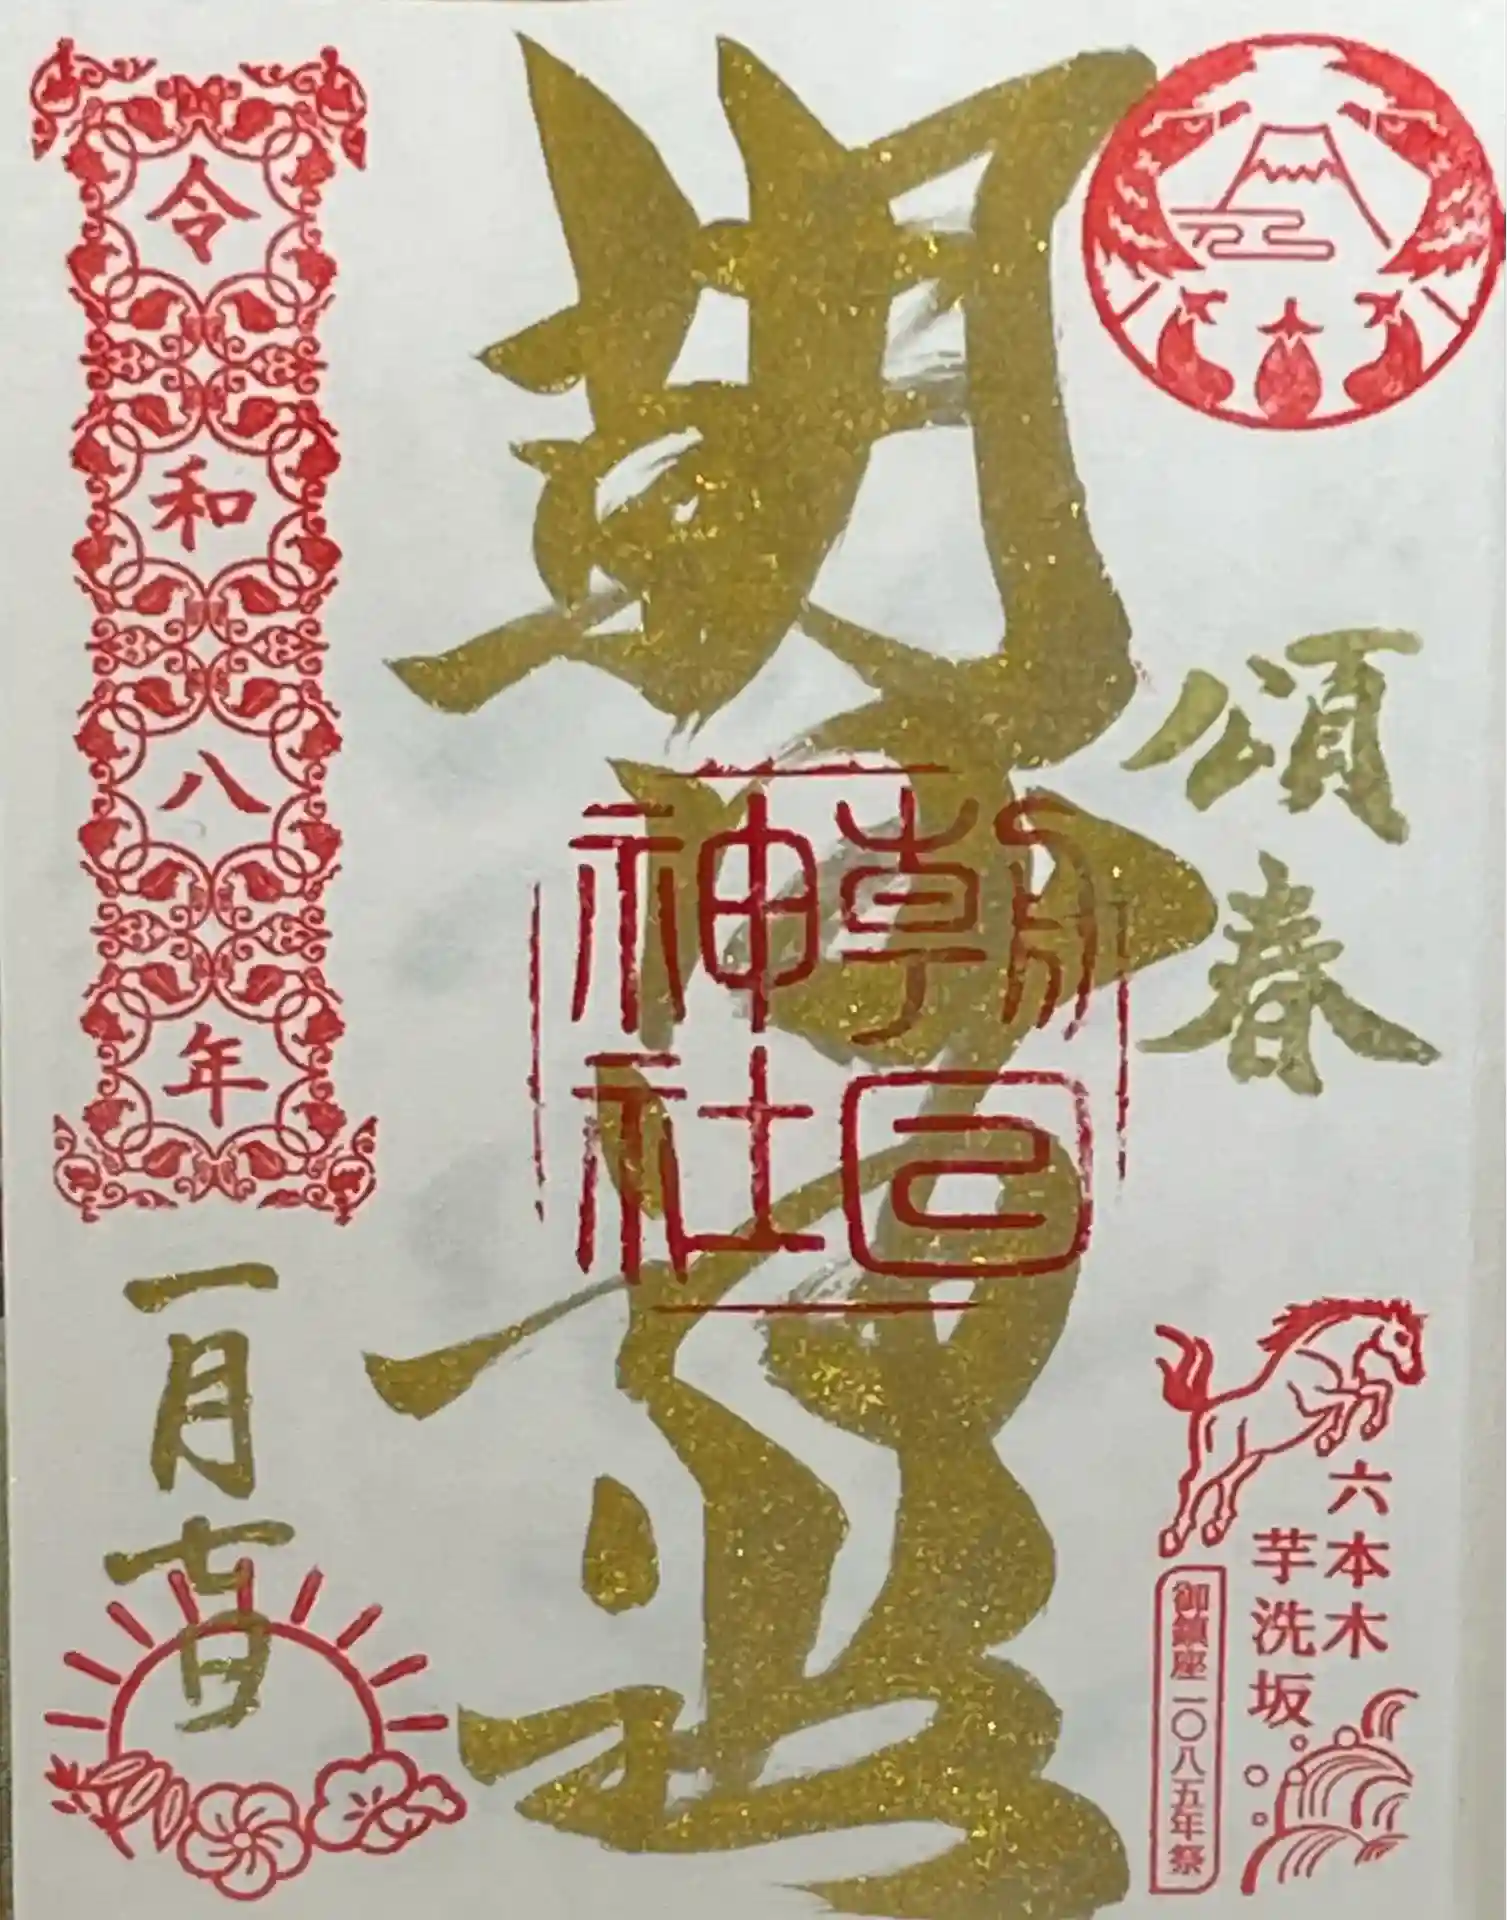 頌春
六本木
芋洗坂
御鎮座一〇八五年祭
朝日神社
朝日神社
令和八年
一月七日